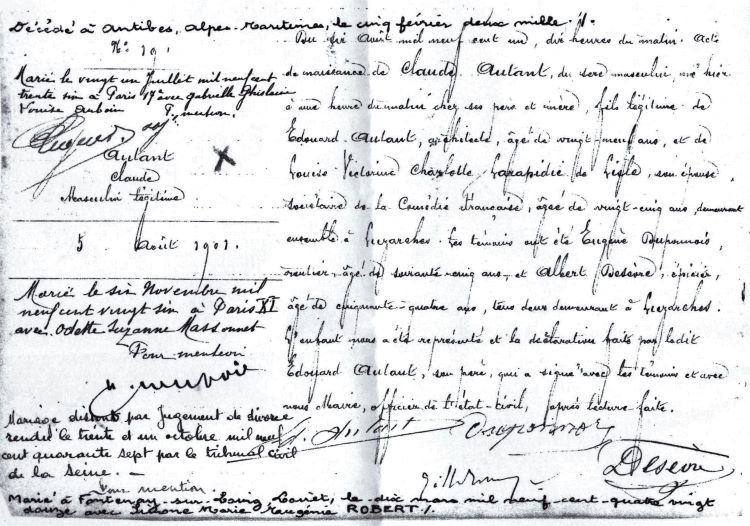 Décédé à Antibes, Alpes-Maritimes, le cinq février deux mille. /.
N° 19.
Marié le vingt un Juillet mil neuf cent
trente six à Paris 17e avec Gabrielle Ghislaine
Louise Aubain P. mention.
Autant
Claude
Masculin légitime
5 Août 1901.
Marié le six Novembre mil
neuf cent vingt six à Paris XI
avec Odette Suzanne Massonnet
Pour mention
Mariage dissous par Jugement de divorce
rendu le trente et un octobre mil neuf
cent quarante sept par le tribunal civil
de la Seine. —
Pour mention.
Marié à Fontenay-sur-Loing, Loiret, le dix mars mil neuf-cent-quatre vingt
douze avec Simone Marie Eugénie ROBERT /.
Du six Août mil neuf cent un, dix heures du matin. Acte
de naissance de Claude Autant, du sexe masculin, né hier
à une heure du matin chez ses père et mère, fils légitime de
Edouard Autant, architecte, âgé de vingt-neuf ans, et de
Louise Victorine Charlotte Larapidie de Lisle, son épouse,
sociétaire de la Comédie Française, âgée de vingt-cinq ans, demeurant
ensemble à Luzarches. Les témoins ont été Eugène Duponnois,
rentier, âgé de soixante-cinq ans, et Albert Desèvre, épicier,
âgé de cinquante-quatre ans, tous deux demeurant à Luzarches.
L'enfant nous a été représenté et la déclaration faite par ledit
Edouard Autant, son père, qui a signé avec les témoins et avec
nous Maire, officier de l'état-civil, après lecture faite.
Autant Duponnois
Desèvre